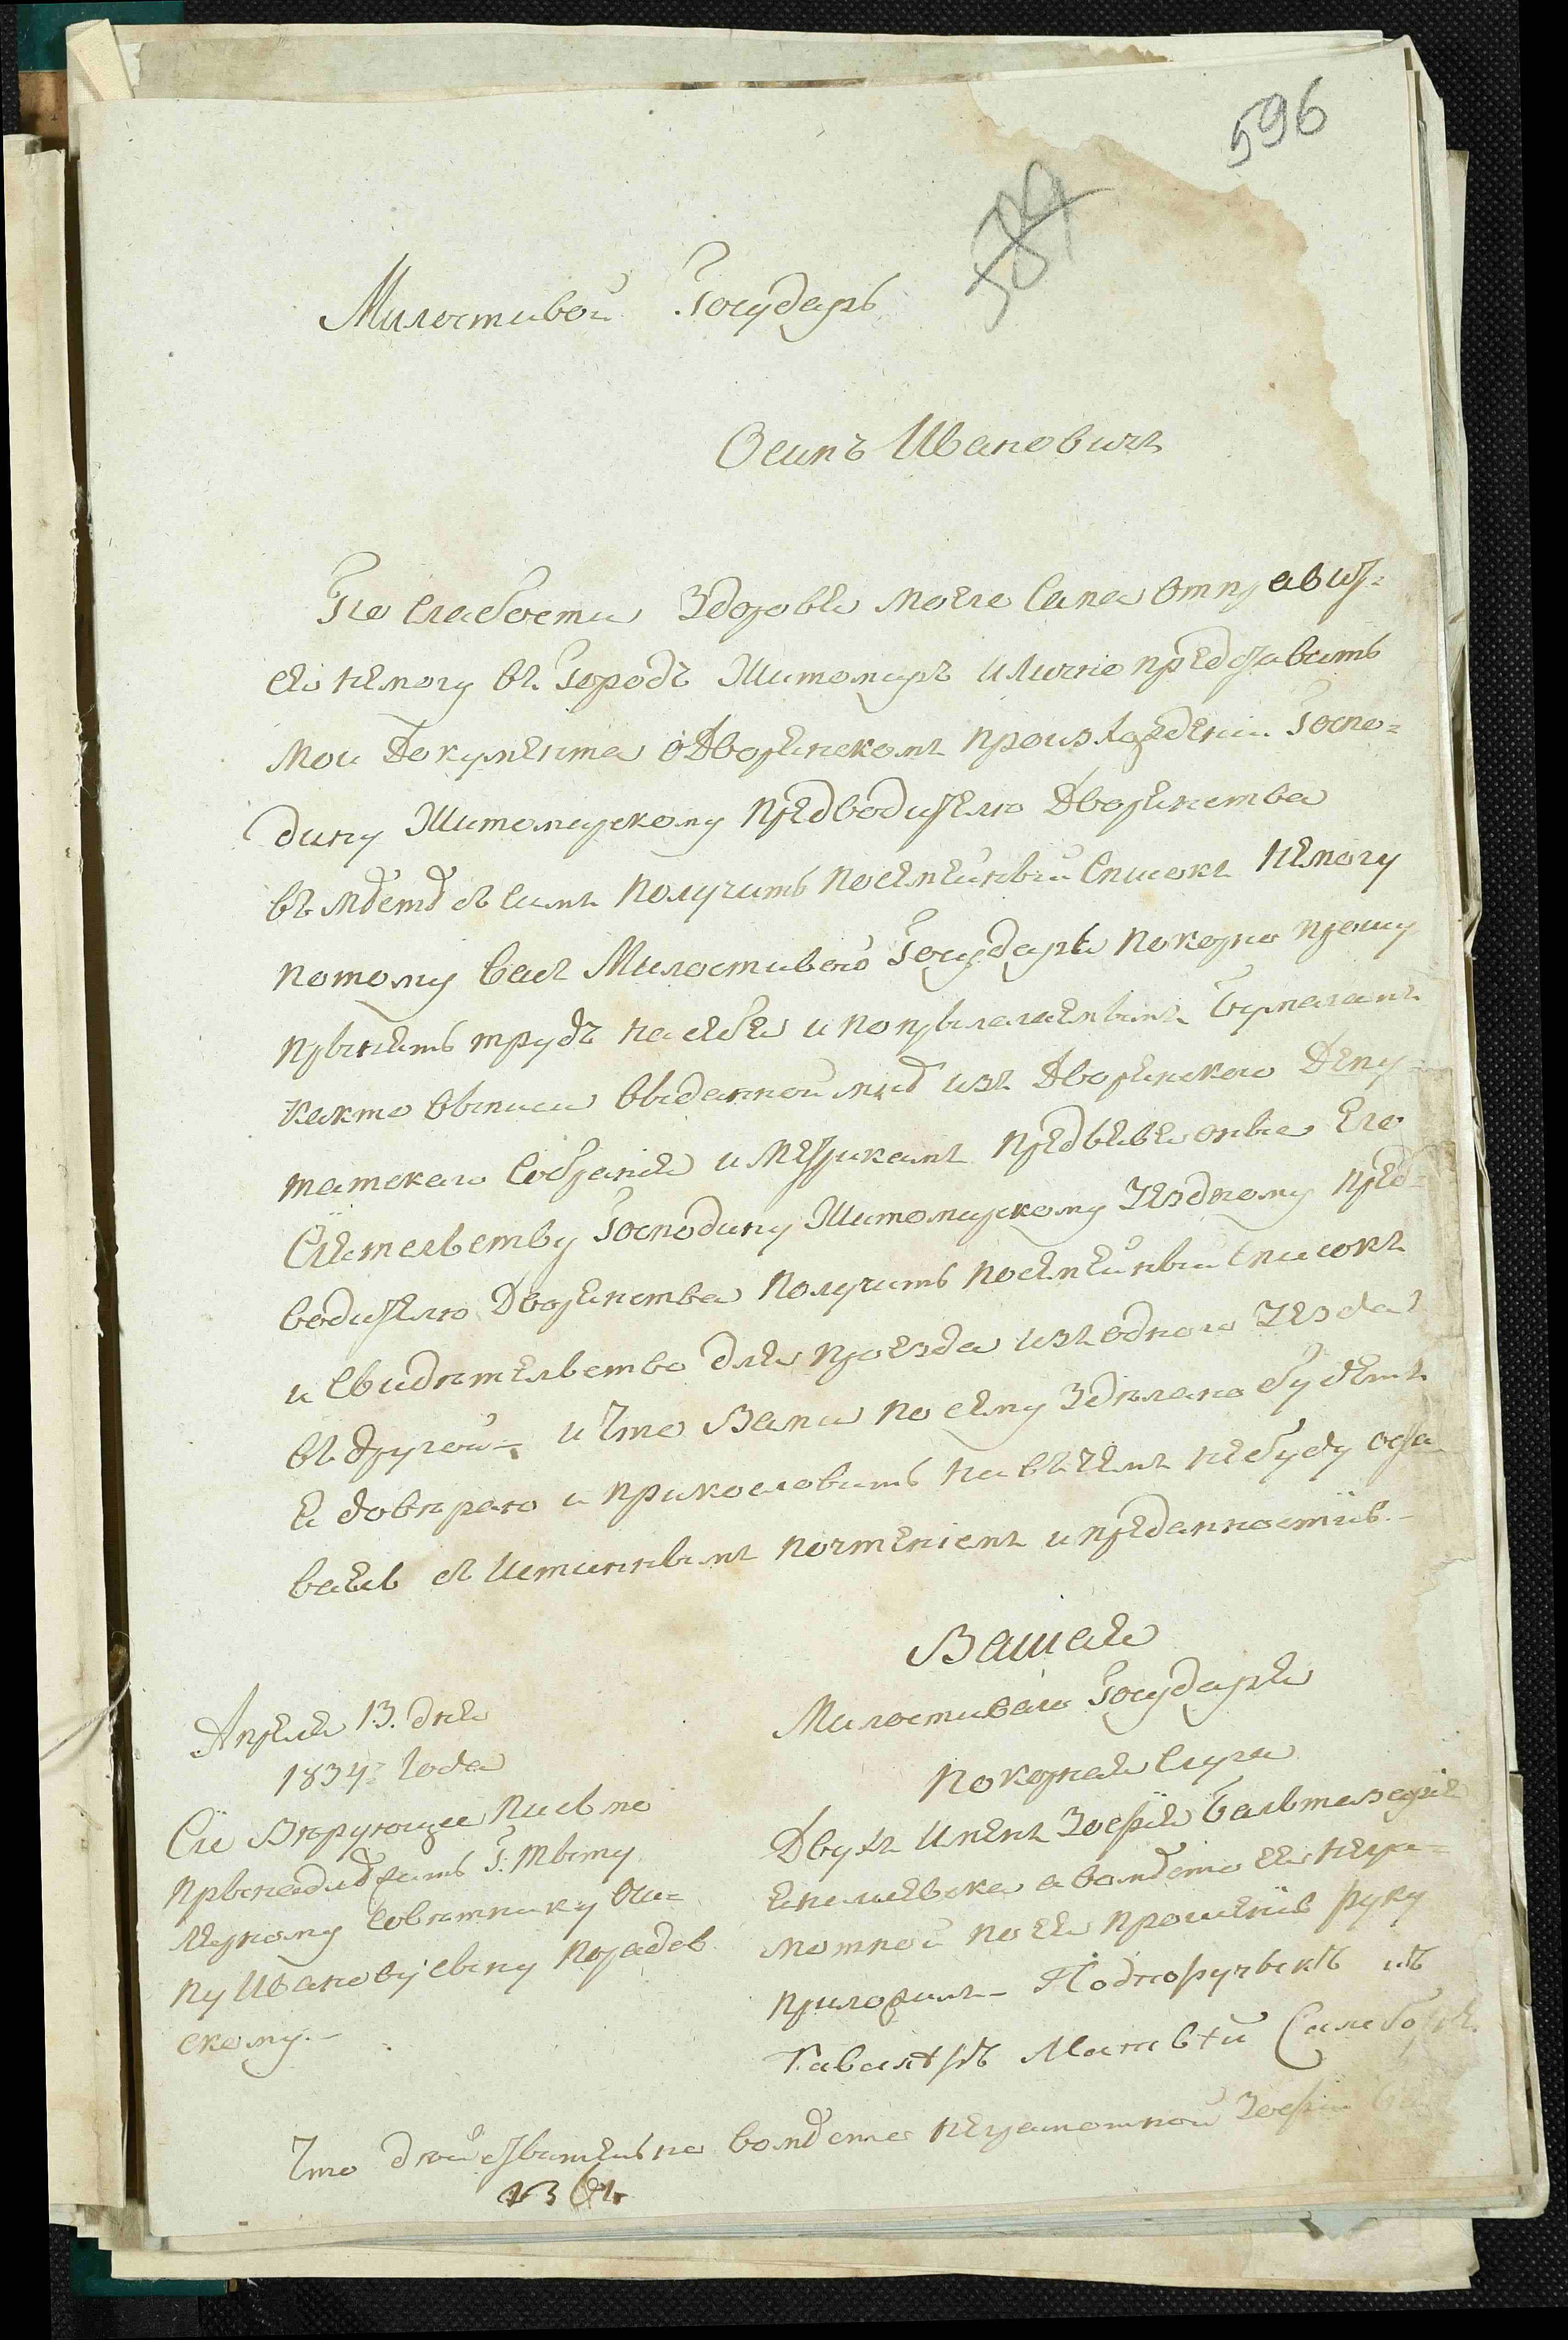 596
584
Милостивой Государь
Осипъ Ивановичъ
По слабости Здоровья моего Сама отправит-
ся немогу въ Городъ Житомиръ и лично представить
мои Документа о Дворянскомъ произхождении Госпо-
дину Житомирскому предводителю Дворянства
въ мѣстѣ съ симъ получить посемейный Списокъ немогу
потому васъ Милостиваго Государя покорно прошу
прынять трудъ на себя и по прылагаемымъ бумагамъ
както выписи выданной мнѣ изъ Дворянскаго Депу-
татскаго Собрания и метрикамъ предъявя оные Его
Сиятельству Господину Житомирскому Уездному пред-
водителю Дворянства получить посемейный Списокъ
и Свидѣтельство для проезда изъ одного Уезда
въ другой - и что Вами по сему Здѣлано будетъ
я довѣраю и прикословить ни въ чемъ небуду оста
ваясь съ истиннымъ почтениемъ и преданностию. -
Вашая
Милостиваго Государя
покорная Слуга
Двухъ Именъ Зоефия Бальтазария
а вомѣсто ея негра-
мотной по ея прошению руку
приложилъ - Подпоручыкъ и
Кавалеръ
Апреля 13. дня
1834 года
Сие Вѣрующее писмо
прынадлѣжитъ Г: Титу
лярному Совѣтнику Оси-
пу Иванову сыну
скому. -
Что дѣйствительно вомѣсто неграмотной Зоефии